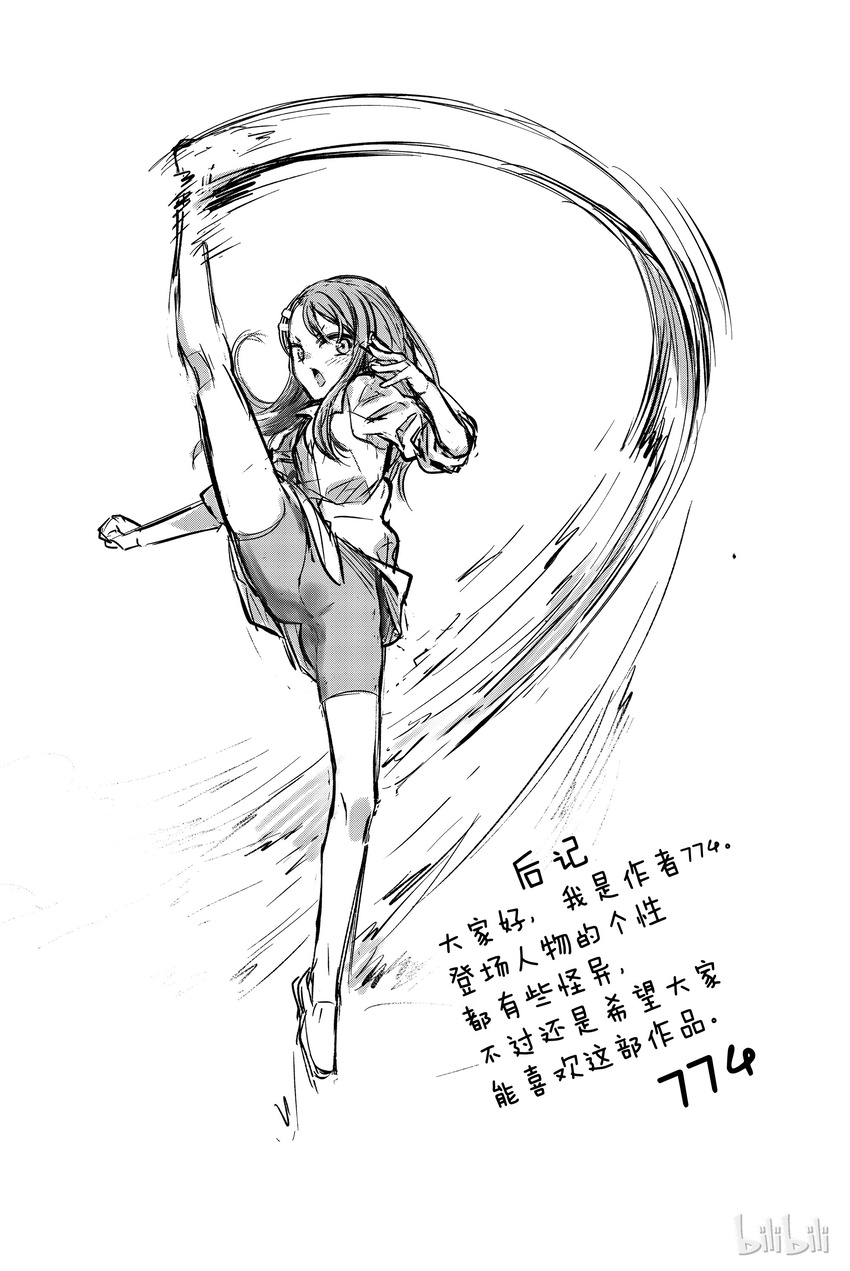 后记
大家好，我是作者774。
登场人物的个性
都有些怪异，
不过还是希望大家
能喜欢这部作品。
774
bilibili